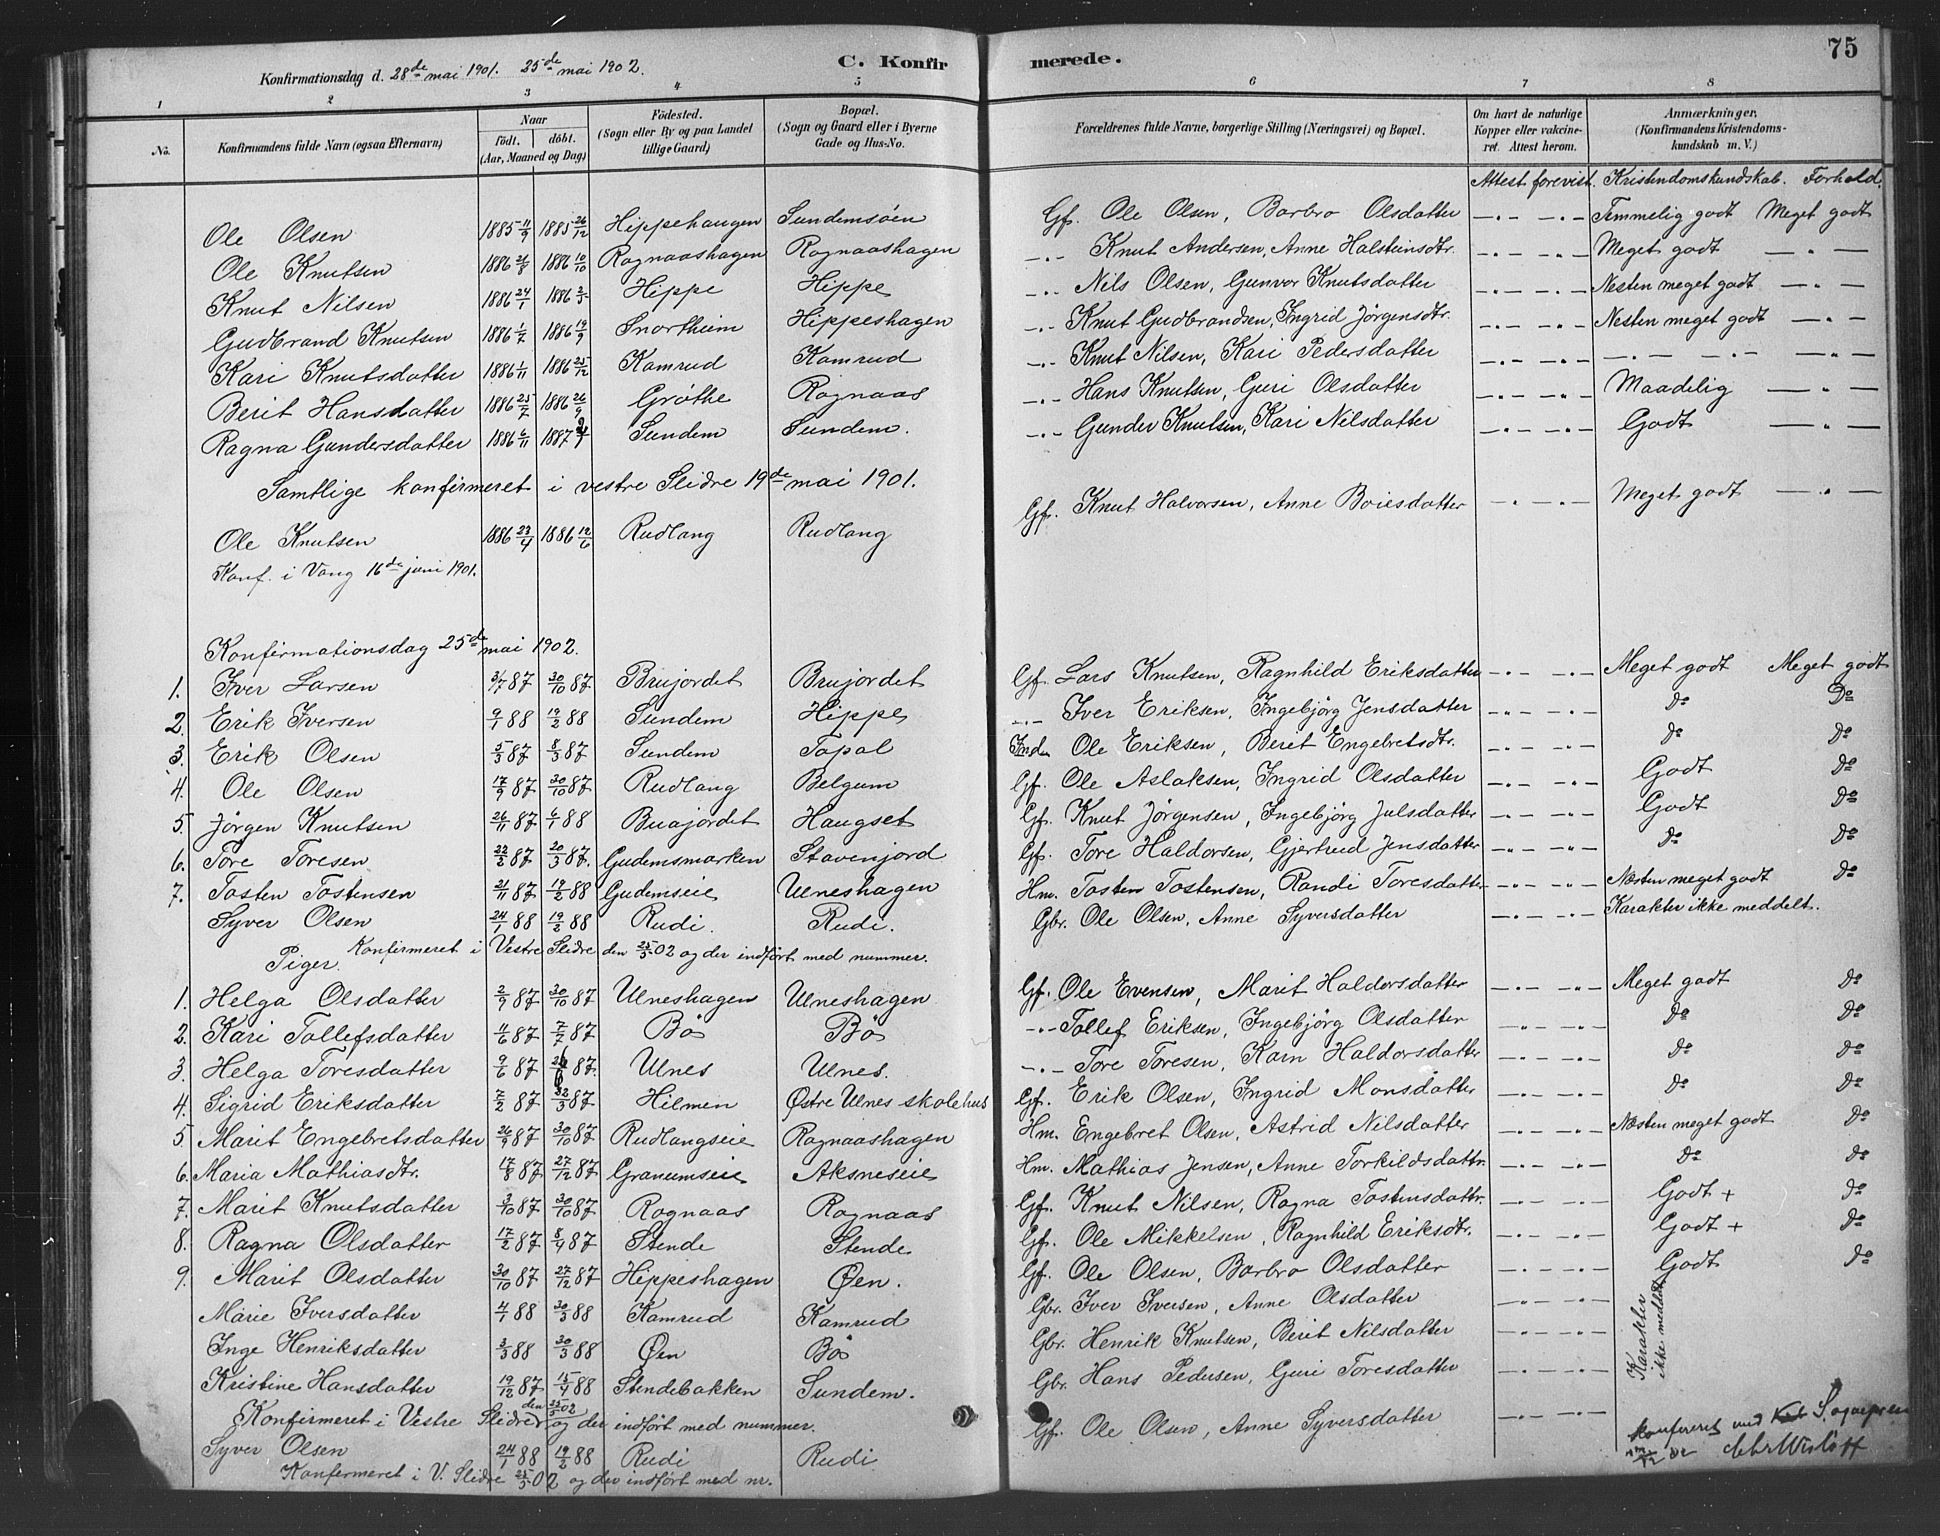 75
Konfirmationsdag d. 28de mai 1901. 25de mai 1902. C. Konfirmerede.
1 2 3 4 5 6 7 8
No. Konfirmandens fulde Navn (ogsaa Efternavn) Naar født. døbt. (Aar, Maaned og Dag) Födested. (Sogn eller By og paa Landet tillige Gaard) Bopæl. (Sogn og Gaard eller i Byerne Gade og Hus-No. Forældrenes fulde Navne, borgerlige Stilling (Næringsvei) og Bopæl. Om havt de naturlige Kopper eller vakcineret. Attest herom. Anmærkninger. (Konfirmandens Kristendomskundskab m. V.)
Attest forevist. Kristendomskundskab. Forhold.
Ole Olsen 1885 11/9 1885 26/12 Hippehaugen Sundemsöen Gf. Ole Olsen, Barbro Olsdatter —"— —"— Temmelig godt Meget godt
Ole Knutsen 1886 21/8 1886 10/10 Rognaashagen Rognaashagen —"— Knut Andersen, Anne Halsteinsdtr. —"— —"— Meget godt —"—
Knut Nilsen 1886 24/1 1886 Hippe Hippe —"— Nils Olsen, Gunvor Knutsdatter —"— —"— Nesten meget godt —"—
Gudbrand Knutsen 1886 1/7 1886 19/9 Snortheim Hippeshagen —"— Knut Gudbrandsen, Ingrid Jörgensdtr. —"— —"— Nesten meget godt —"—
Kari Knutsdatter 1886 1/11 1886 25/12 Kamrud Kamrud —"— Knut Nilsen, Kari Pedersdatter —"— —"— —"— —"— —"—
Berit Hansdatter 1886 25/7 1886 26/9 Gröthe Rognaas —"— Hans Knutsen, Guri Olsdatter —"— —"— Maadelig —"—
Ragna Gundersdatter 1886 6/11 1887 Sundem Sundem. —"— Gunder Knutsen, Kari Nilsdatter —"— —"— Godt —"—
Samtlige konfirmeret i vestre Slidre 19de mai 1901.
Ole Knutsen 1886 23/4 1886 12/6 Rudlang Rudlang Gf. Knut Halvorsen, Anne Boiesdatter —"— —"— Meget godt —"—
Konf. i Vang 16de juni 1901.
Konfirmationsdag 25de mai 1902.
1. Iver Larsen 3/7 87 30/10 87 Brujordet Brujordet Gf. Lars Knutsen, Ragnhild Eriksdatter —"— —"— Meget godt Meget godt
2. Erik Iversen 9/1 88 19/2 88 Sundem Hippe —"— Iver Eriksen, Ingebjörg Jensdatter —"— —"— do Do
3. Erik Olsen 5/3 87 8/3 87 Sundem Topal Inders Ole Eriksen, Beret Engebretsdtr. —"— —"— do do
4. Ole Olsen 17/9 87 30/10 87 Rudlang Belgum Gf. Ole Aslaksen, Ingrid Olsdatter —"— —"— Godt do
5. Jörgen Knutsen 26/11 87 6/1 88 Buajordet Haugset Gf. Knut Jörgensen, Ingebjörg Julsdatter —"— —"— Godt do
6. Tore Toresen 22/2 87 20/3 87. Gudemsmarken Stavenjord Gf. Tore Haldorsen, Gjertrud Jensdatter —"— —"— do do
7. Tosten Tostensen 21/11 87 19/2 88 Gudemseie Ulneshagen Hm. Tosten Tostensen, Randi Toresdatter —"— —"— Næsten meget godt do
Syver Olsen 24/1 88 19/2 88 Rudi. Rudi. Gbr. Ole Olsen, Anne Syversdatter —"— —"— Karakter ikke meddelt.
Konfirmeret i Vestre Slidre den 25/5 02 og der indført med nummer.
Piger.
1. Helga Olsdatter 2/9 87 30/10 87 Ulneshagen Ulneshagen Gf. Ole Evensen, Marit Haldorsdatter —"— —"— Meget godt do
2. Kari Tollefsdatter 11/6 87 7/7 87 Bö Bö —"— Tollef Eriksen, Ingebjörg Olsdatter —"— —"— do do
3. Helga Toresdatter 9/6 87 26/6 87. Ulnes Ulnes. —"— Tore Toresen, Karn Haldorsdatter —"— —"— do do
4. Sigrid Eriksdatter 7/2 87 87 Hilmen Østre Ulnes skolehus Gf. Erik Olsen, Ingrid Monsdatter —"— —"— do do
5 Marit Engebretsdatter 26/9 87 30/10 87 Rudlangseie Rognaashagen Hm. Engebret Olsen, Astrid Nilsdatter —"— —"— Næsten meget godt do
6. Maria Mathiasdtr. 17/8 87 27/12 87 Granumseie Aksneseie Hm. Mathias Jensen, Anne Torkildsdattr. —"— —"— do do
7. Marit Knutsdatter 3/10 87 30/10 87 Rognaas Rognaas Gf. Knut Nilsen, Ragna Tostensdattr. —"— —"— Godt + do
8. Ragna Olsdatter 17/2 87 8/4 87 Stende Stende Gf. Ole Mikkelsen, Ragnhild Eriksdtr. —"— —"— Godt + do
9. Marit Olsdatter 30/10 87 27/12 87 Hippeshagen Øen. Gf. Ole Olsen, Barbro Olsdatter —"— —"— Godt do
Marie Iversdatter 4/1 88 30/3 88 Kamrud Kamrud Gbr. Iver Iversen, Anne Olsdatter —"— —"— Karakter ikke meddelt
Inge Henriksdatter 3/3 88 30/3 88 Øen Bö Gbr. Henrik Knutsen, Berit Nilsdatter —"— —"—
Kristine Hansdatter 19/12 87 15/4 88 Stendebakken Sundem. Gbr. Hans Pedersen, Guri Toresdatter —"— —"—
Konfirmeret i Vestre Slidre den 25/5 02 og der indført med nummer.
Syver Olsen 24/1 88 19/2 88 Rudi Rudi Gf. Ole Olsen, Anne Syversdatter —"— —"— konfereret med
Konfermeret i V. Slidre 25/5 02 og der indført med nr.